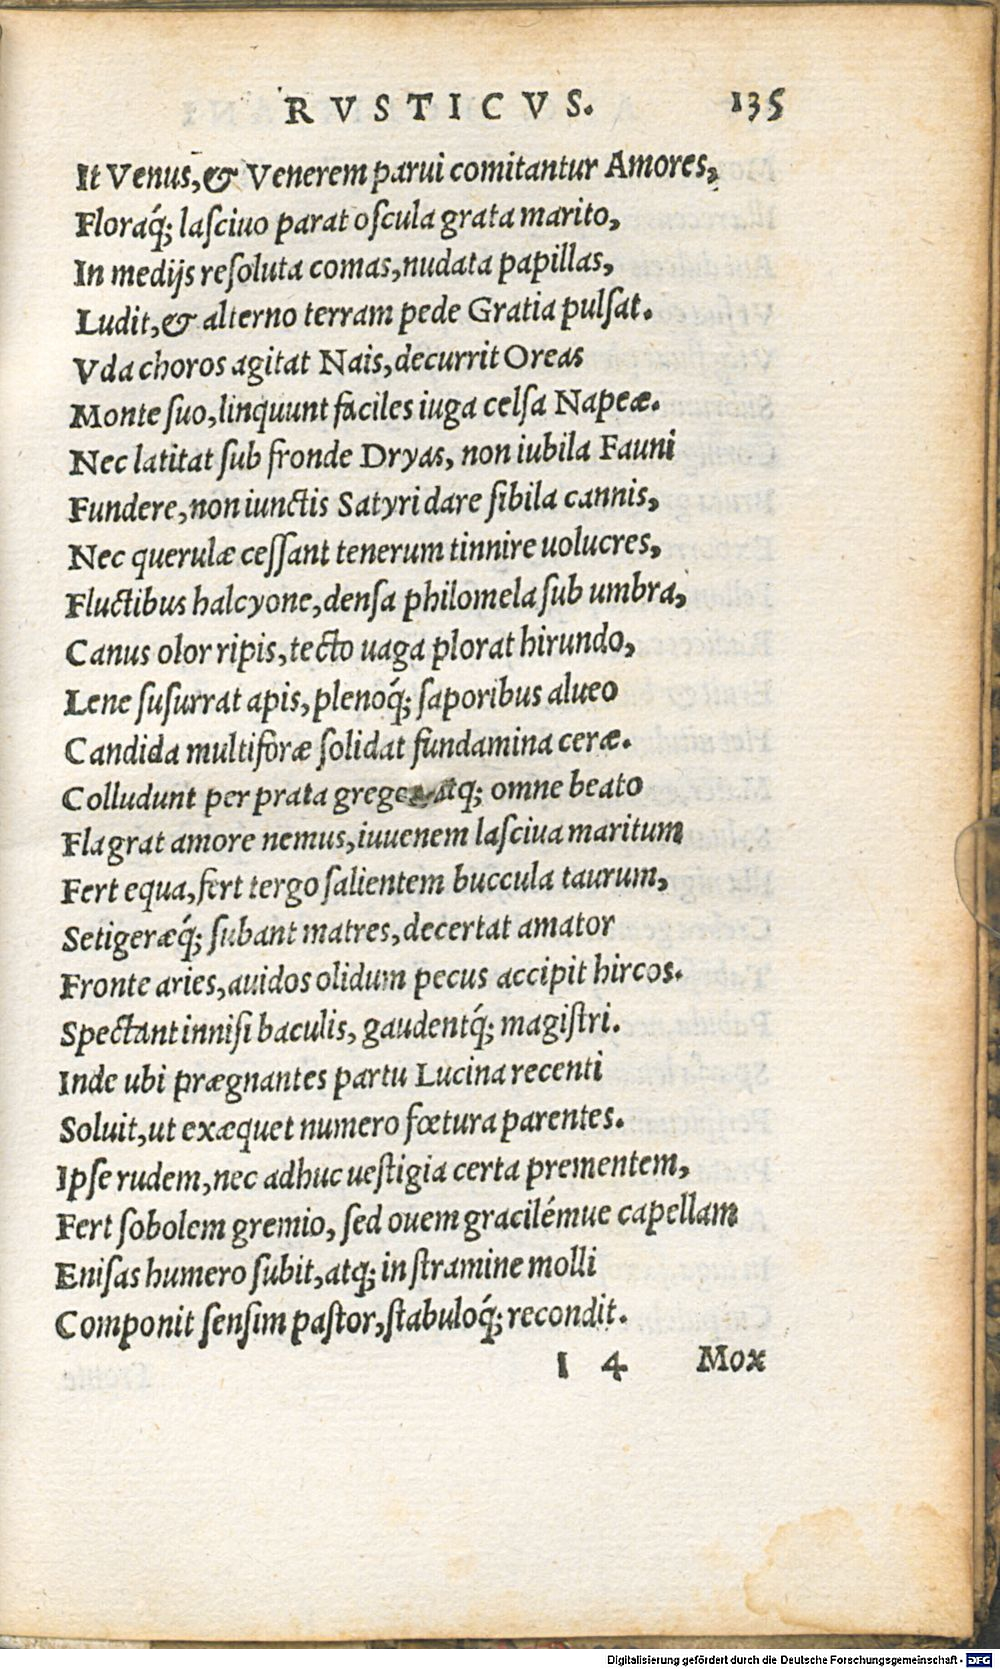 RVSTICVS. 135
It Venus,& Venerem parui comitantur Amores,
Floraq́; laſciuo parat oſcula grata marito,
In medijs reſoluta comas,nudata papillas,
Ludit,& alterno terram pede Gratia pulſat.
Vda choros agitat Nais,decurrit Oreas
Monte ſuo,linquunt faciles iuga celſa Napeæ.
Nec latitat ſub fronde Dryas, non iubila Fauni
Fundere,non iunctis Satyri dare ſibila cannis,
Nec querulæ ceſſant tenerum tinnire uolucres,
Fluctibus halcyone,denſa philomela ſub umbra,
Canus olor ripis,tecto uaga plorat hirundo,
Lene ſuſurrat apis,plenoq́; ſaporibus alueo
Candida multiforæ ſolidat fundamina ceræ.
Colludunt per prata greges atq; omne beato
Flagrat amore nemus,iuuenem laſciua maritum
Fert equa,fert tergo ſalientem buccula taurum,
Setigeræq́; ſubant matres,decertat amator
Fronte aries,auidos olidum pecus accipit hircos.
Spectant inniſi baculis, gaudentq́; magiſtri.
Inde ubi prægnantes partu Lucina recenti
Soluit,ut exæquet numero fœtura parentes.
Ipſe rudem,nec adhuc ueſtigia certa prementem,
Fert ſobolem gremio, ſed ouem gracilémue capellam
Eniſas humero ſubit,atq; in ſtramine molli
Componit ſenſim paſtor,ſtabuloq́; recondit.
I 4 Mox
Digitalisierung gefördert durch die Deutsche Forschungsgemeinschaft - DFG